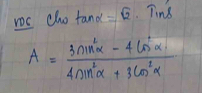 VD5 Cho tanα = √2. Tính
A = 3sin²α - 4cos²α / 4sin²α + 3cos²α